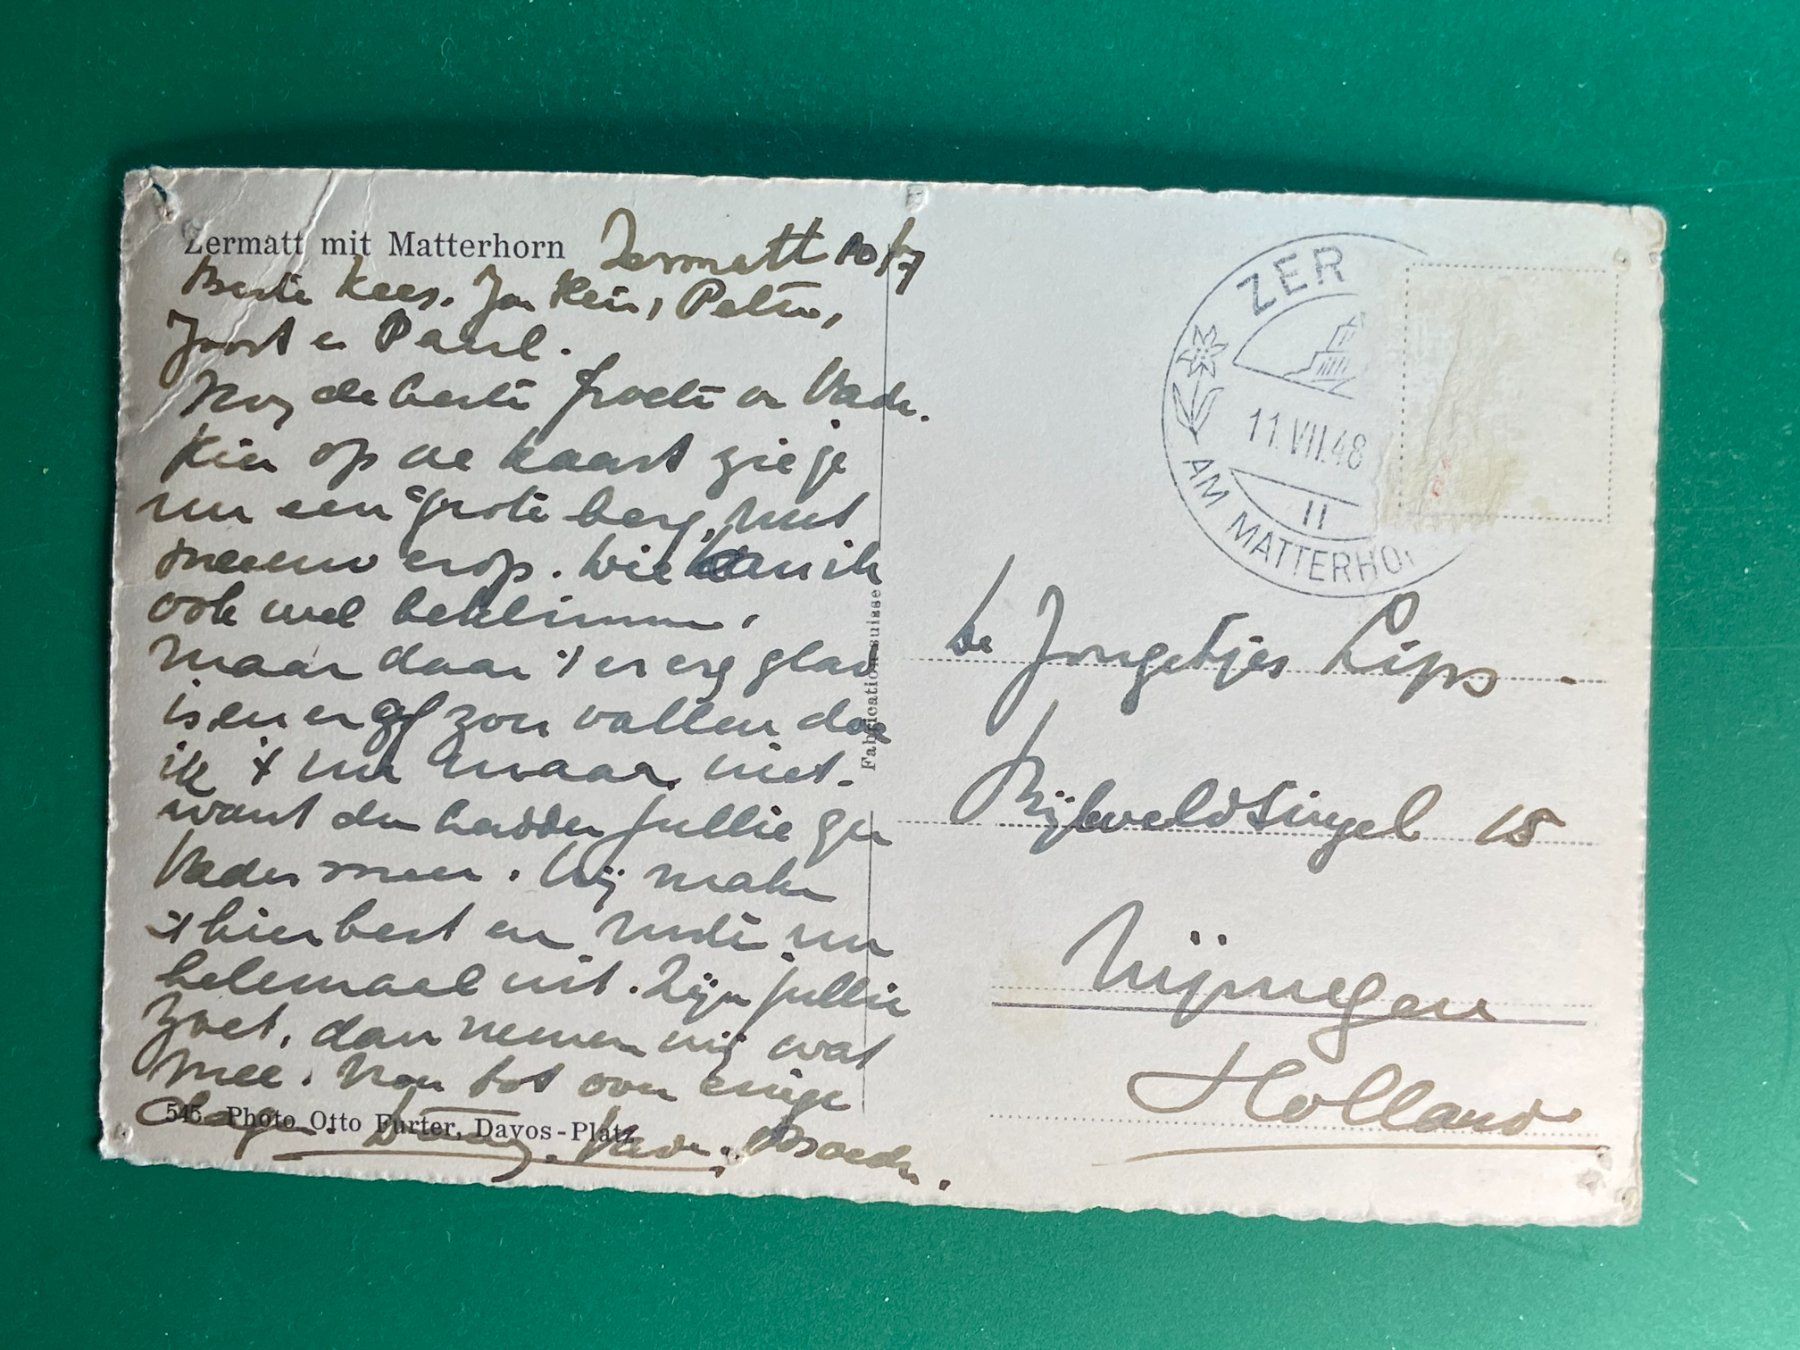 Zermatt mit Matterhorn
Zermatt 10/7
Beste Kees, Jan Hein, Peter,
Joost en Paul.
Nog de beste groeten v Vader.
Hier op de kaart zie je
nu een grote berg, met
sneeuw erop. Die kan ik
ook wel beklimmen,
maar daar 't er erg glad
is, en er af zou vallen doe
ik 't nu maar niet.
want dan hadden jullie geen
Vader meer. Wij maken
't hier best en rusten nu
helemaal uit. Zijn jullie
zoet, dan nemen wij wat
mee. Nou tot over enige
dagen. Vader. Moeder.
545 Photo Otto Furter, Davos-Platz
Fabrication suisse
ZER
11.VII.48
11
AM MATTERHO
de Jongetjes Lips.
Bijleveldsingel 15
Nijmegen
Holland